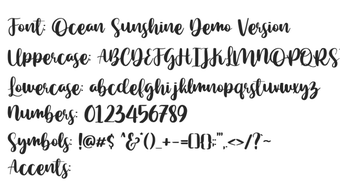 Font: Ocean Sunshine Demo Version
Uppercase: ABCDEFGHIJKLMNOPQRS
Lowercase: abcdefghijklmnopqrstuvwxyz
Numbers: 0123456789
Symbols: !@#$ ^&*()_+-=[]{};:"',.<>/?`~
Accents: